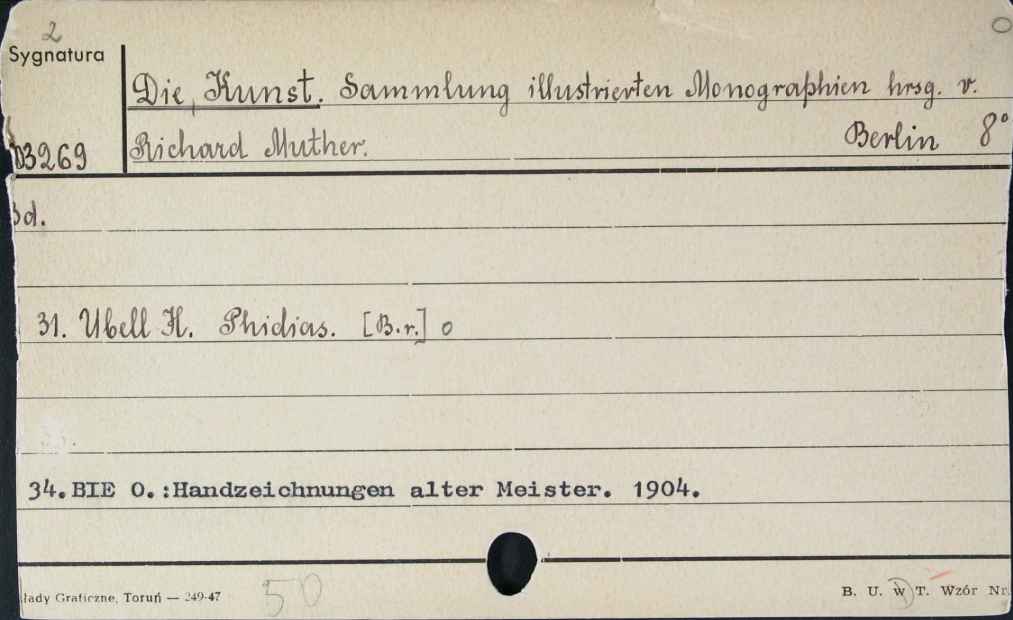 2
Sygnatura
Die Kunst. Sammlung illustrierten Monographien hrsg. v.
03269 Richard Muther. Berlin 8°
Bd.
31. Ubell H. Phidias. [B.r.] o
34. BIE O.:Handzeichnungen alter Meister. 1904.
łady Graficzne, Toruń — 249-47 50 B. U. w T. Wzór Nr